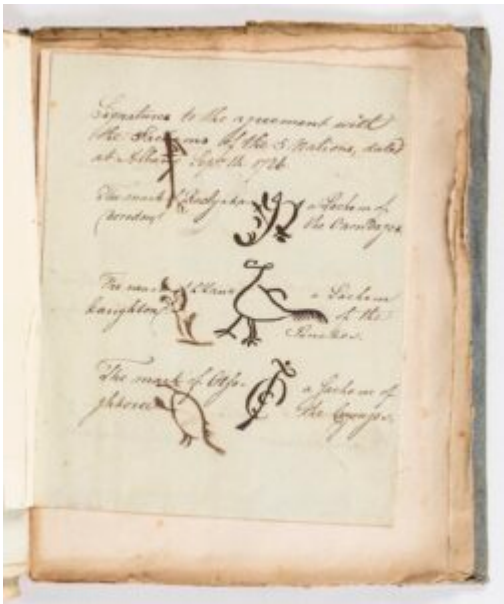 Signatures to the agreement with
the Sachems of the 5 Nations, dated
at Albany Sept. 14. 1726.
The mark of a Sachem of
the Onondages
The mark of a Sachem
of the
Senekes.
The mark of a Sachem of
the Cayouges.